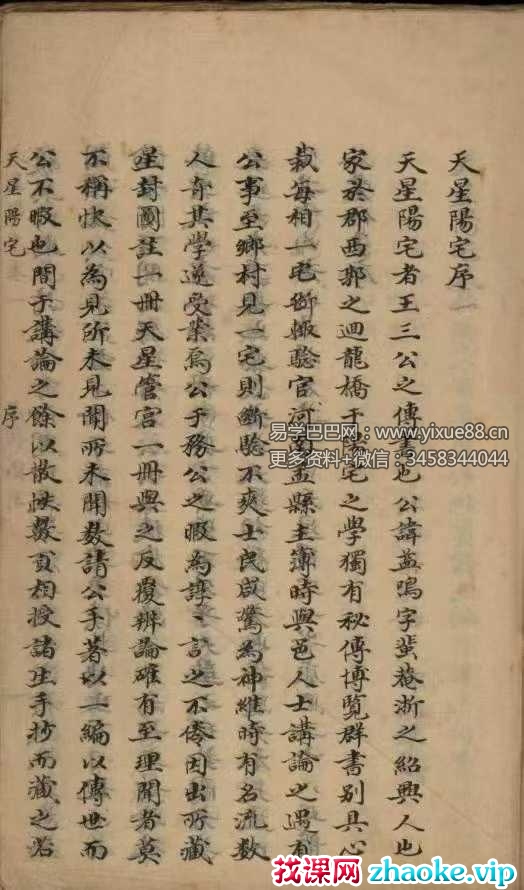 天星陽宅序
天星陽宅者王三公之傳書也公諱盖鳴字蜚菴浙之紹興人也
家於郡西郭之迴龍橋于陽宅之學獨有秘傳博覽群書別具心
裁每相一宅御輙驗官河南盂縣主簿時與邑人士講論之遇有
公事至鄉村見一宅則斷驗不爽士民咸驚為神維時有名流數
人奇其學遂受業焉公于務公之暇為諄、言之不倦因出所藏
星封圖註一冊天星管宮一冊與之反覆辨論確有至理聞者莫
不稱快以為見所未見聞所未聞数請公手著以一編以傳世而
公不暇也間于講論之餘以散帙數頁相授諸生手抄而藏之若
天星陽宅 序
易学巴巴网:www.yixue88.cn
更多资料+微信:3458344044
找课网
zhaoke.vip